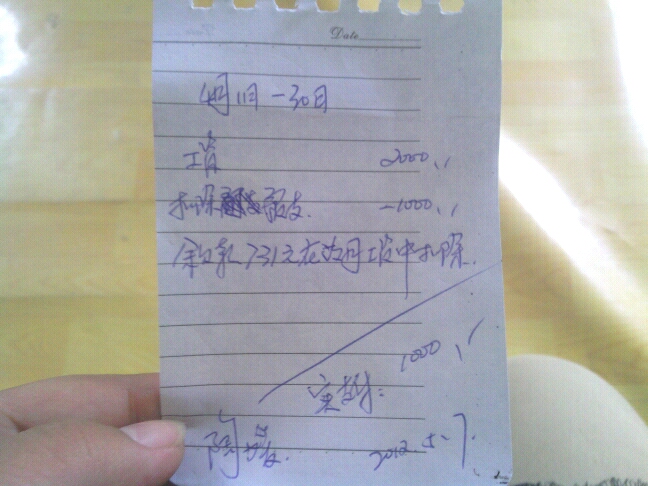 Date
4月1日-30日
工资 2000,,
扣除 预支. -1000,,
余欠款731元在次月工资中扣除.
1000,,
实支:
陶 2012.5.7.